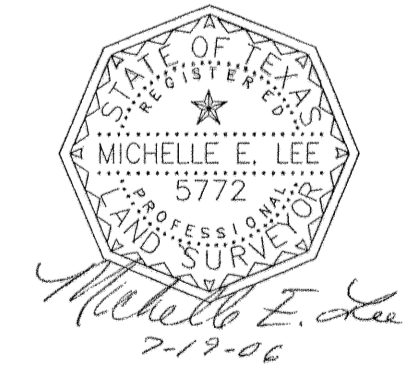 STATE OF TEXAS
REGISTERED
MICHELLE E. LEE
5772
PROFESSIONAL
LAND SURVEYOR
Michelle E. Lee
7-19-06